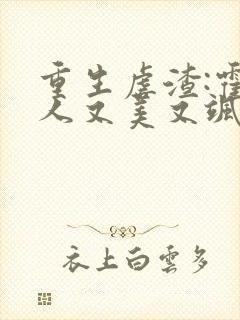 重生虐渣:霍
人又美又飒
衣上白雲多